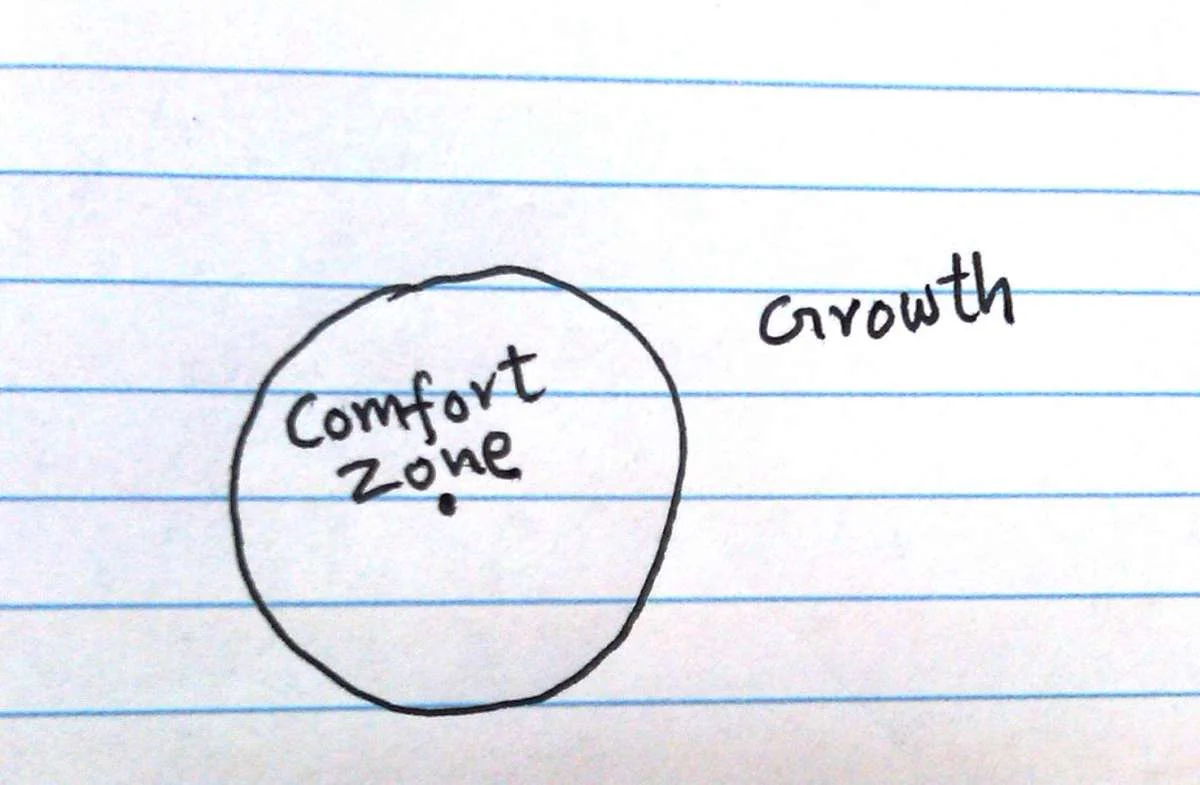 Growth
Comfort
zone